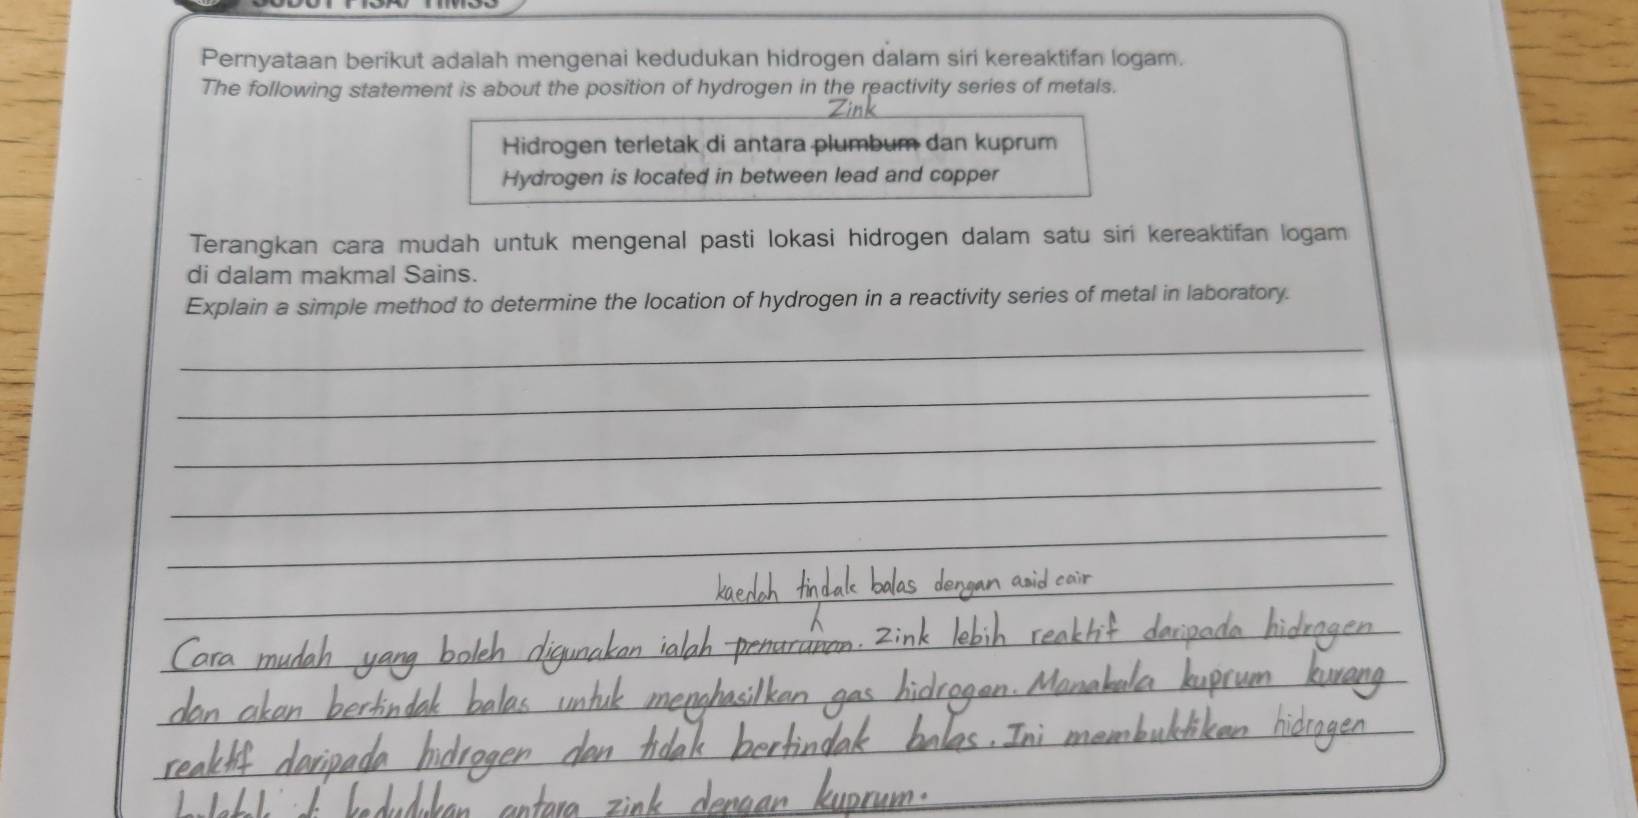 Pernyataan berikut adalah mengenai kedudukan hidrogen dalam siri kereaktifan logam.
The following statement is about the position of hydrogen in the reactivity series of metals.
Zink
Hidrogen terletak di antara plumbum dan kuprum
Hydrogen is located in between lead and copper
Terangkan cara mudah untuk mengenal pasti lokasi hidrogen dalam satu siri kereaktifan logam
di dalam makmal Sains.
Explain a simple method to determine the location of hydrogen in a reactivity series of metal in laboratory.
kaedah tindak balas dengan asid cair
Cara mudah yang boleh digunakan ialah penurunan. Zink lebih reaktif daripada hidrogen
dan akan bertindak balas untuk menghasilkan gas hidrogen. Manakala kuprum kurang
reaktif daripada hidrogen dan tidak bertindak balas. Ini membuktikan hidrogen
kedudukan antara zink dengan kuprum.